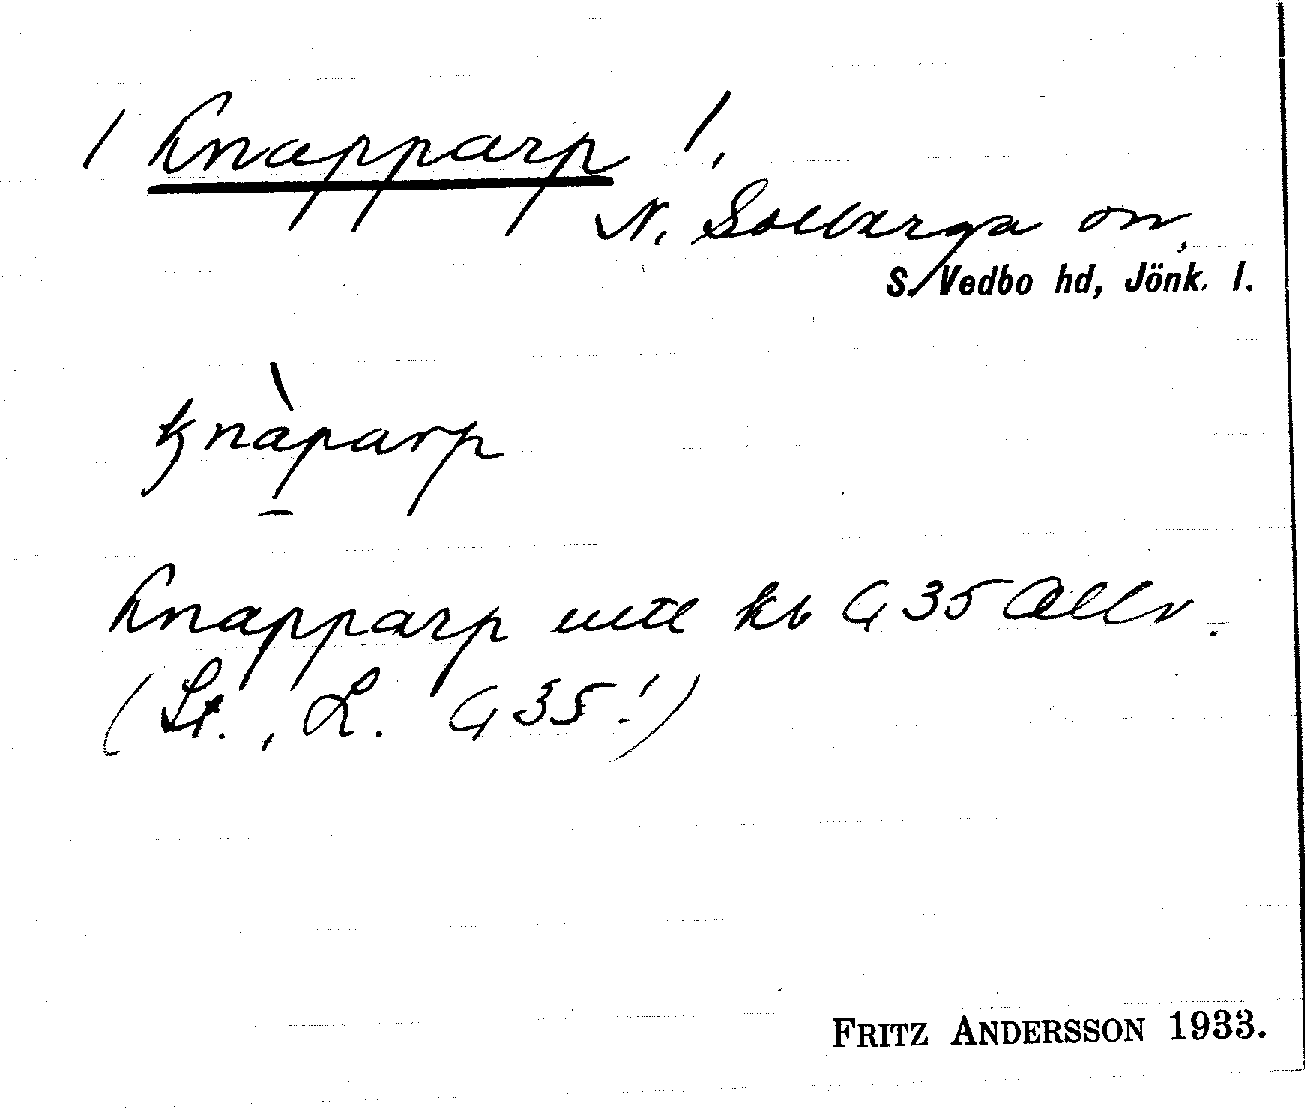 ! Knapparp !,
N. Solberga sn,
S. Vedbo hd, Jönk. l.
knàparp
Knapparp utl kb G 35 Allv.
(St., L. G 35!)
FRITZ ANDERSSON 1933.